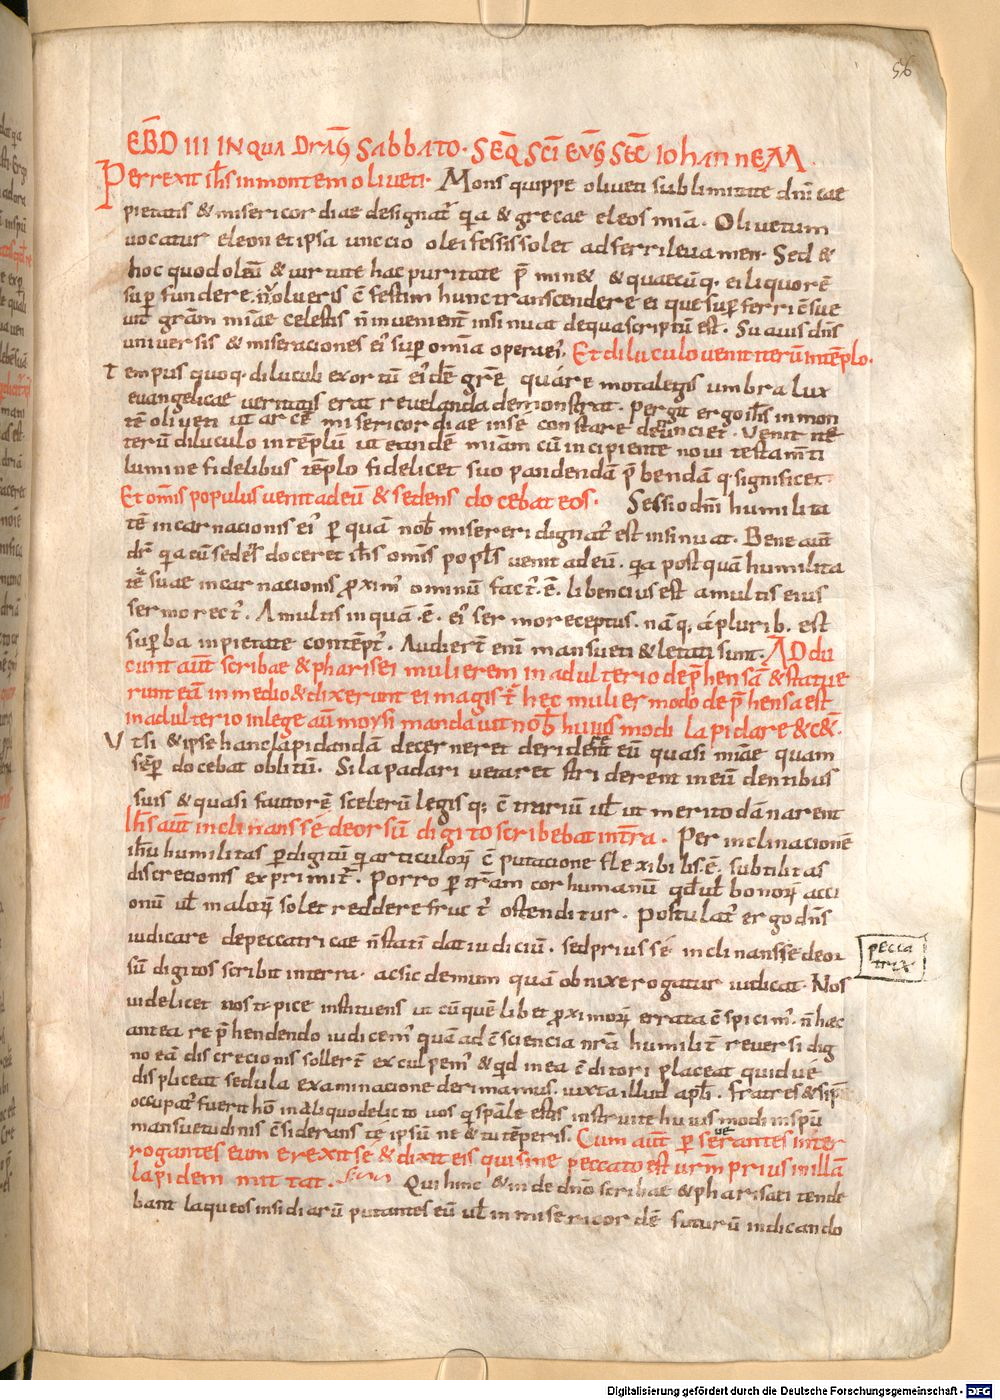 56
EB̅D III IN QUA DrAG̅ SabbATO · SEQ̅ SC̅I EVG̅ SEC̅ IohannEM.
Perrexit ih̅s in montem oliveti · Mons quippe oliveti sublimitate dn̅icae
pietatis & misericordiae designat̅ q̅a & grecae eleos mi̅a · Olivetum
vocatur eleon et ipsa unccio olei fessis solet adferri levamen · Sed &
hoc quod oleu̅ & virtute hac puritate p̅ mine& & quaecu̅q· ei liquore̅
sup̅ fundere volveris c̅ festim hunc transcendere ei que sup̅ ferri c̅sue
vit gra̅m mi̅ae celestis n̅ invenient̅ insinuat de qua scriptu̅ est · Suavis dn̅s
universis & miseraciones ei' sup̅ omi̅a opera ei'. Et diluculo venit iteru̅ in te̅plo.
Tempus quoq· diluculi exortu̅ ei'de̅ gre̅ quare mota legis umbra lux
evangelicae veritatis erat revelanda demonstrat · pergit ergo ih̅s in mon
te̅ oliveti ut arce̅ misericordiae in se̅ constare denunciet · Venit ite
teru̅ diluculo in te̅plu̅ ut eande̅ mi̅am cu̅ incipiente novi testam̅ti
lumine fidelibus te̅plo fidelicet suo pandenda̅ p̅bendam q· significet·
Et om̅is populus venit ad eu̅ & sedens docebat eos · Sessio dn̅i humilita
te̅ incarnacionis ei' p̅ qua̅ nob̅ misereri dignat' est insinuat · Bene aut̅
dr̅ q̅a cu̅ sede̅s doceret ih̅s om̅is popl̅s venit ad eu̅ · q̅a postqua̅ humilita
te̅ suae incarnacionis proxim' ominu̅ fact̅'· e̅· libencius est a multis eius
sermo rect'. A multis inqua̅ · e̅· ei' sermo receptus · na̅ q· a plurib· est
sup̅ba inpietate conte̅pt'. Audiert̅ eni̅ mansueti & letati sunt · ADdu
cunt aut̅ scribae & pharisei mulierem in adulterio dep̅hensa̅ & statue
runt ea̅ in medio & dixerunt ei magist̅ hec mulier modo dep̅hensa est
in adulterio in lege au̅ moysi mandavit nob̅ huiusmodi lapidare &c&.
Ut si & ipse hanc lapidanda̅ decerneret deridesent eu̅ quasi mi̅ae quam
se̅p docebat oblitu̅ · Si lapadari vetaret striderent in eu̅ dentibus
suis & quasi fautore̅ sceleru̅ legisq; c̅trariu̅ ul̅ ut merito da̅narent
Ih̅s aut̅ inclinans se̅ deorsu̅ digito scribebat in tr̅a · Per inclinacione̅
ih̅u humilitas p̅ digitu̅ qi articulor̅ c̅putacione flexibilis · e̅· subtilitas
discrecionis exprimit̅'. Porro p̅ tr̅am cor humanu̅ qd̅ ul̅ bonor̅ acci
onu̅ ul̅ malor̅ solet reddere fruct' ostenditur · Postulat' ergo dn̅s
iudicare de peccatricae n̅ stati̅ dat iudiciu̅ · sed prius se̅ inclinans se deor
su̅ digitos scribit in terra · ac sic demum qua̅ obnixe rogatur iudicat · Nos
videlicet nos tipice instituens ut cu̅ que̅libet proximor̅ errata c̅spicim' · n̅ haec
antea rep̅hendendo iudicem' qua̅ ad c̅sciencia nr̅a humilit̅ reversi dig
no ea̅ discrecionis sollert̅ exculpem' & qd̅ in ea c̅ditori placeat quid ve̅
displiceat sedula examinacione derimamus · iuxta illud apl̅i · Fratres & si p̅
occupat' fuerit ho̅ in aliquo delicto vos q spa̅le estis instruite huiusmodi in spu̅
mansuetudinis c̅siderans te̅ ipsu̅ ne & tu te̅peris. Cum aut̅ p̅severantes inter
rogantes eum erexit se̅ & dixit eis qui sine peccato est vr̅m prius in illa̅
lapidem mittat. Qui hinc & inde dn̅o scribae & pharisaei tende
bant laqueos insidiaru̅ putantes eu̅ ul̅ inmisericorde̅ futuru̅ iudicando
pecca
trix
Digitalisierung gefördert durch die Deutsche Forschungsgemeinschaft - DFG